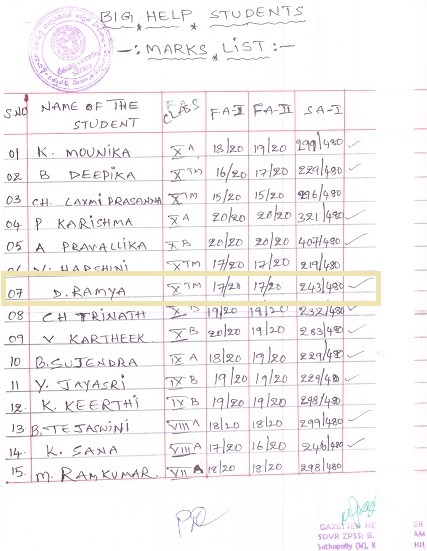 BIG HELP STUDENTS
-: MARKS LIST :-
S.NO NAME OF THE STUDENT CLASS FA-I FA-II SA-I
01 K. MOUNIKA X A 18/20 19/20 299/480
02 B DEEPIKA X TM 16/20 17/20 229/480
03 CH. LAXMI PRASANNA X TM 15/20 15/20 296/480
04 P KARISHMA X A 20/20 20/20 321/480
05 A PRAVALLIKA X B 20/20 20/20 407/480
HARSHINI X TM 17/20 17/20 219/480
07 D. RAMYA X TM 17/20 17/20 243/480
08 CH TRINATH X B 19/20 19/20 232/480
09 V KARTHEEK X B 20/20 19/20 283/480
10 B. SUJENDRA IX A 18/20 19/20 229/480
11 Y. JAYASRI IX B 19/20 19/20 229/480
12. K. KEERTHI IX B 19/20 19/20 298/480
13. B. TEJASWINI VIII A 18/20 18/20 299/480
14. K. SANA VIII A 17/20 16/20 246/480
15. M. RAMKUMAR VII A 18/20 18/20 298/480
GAZETTED HE ER
SDVR ZPSS: B. AM
Sathupally (M), 303